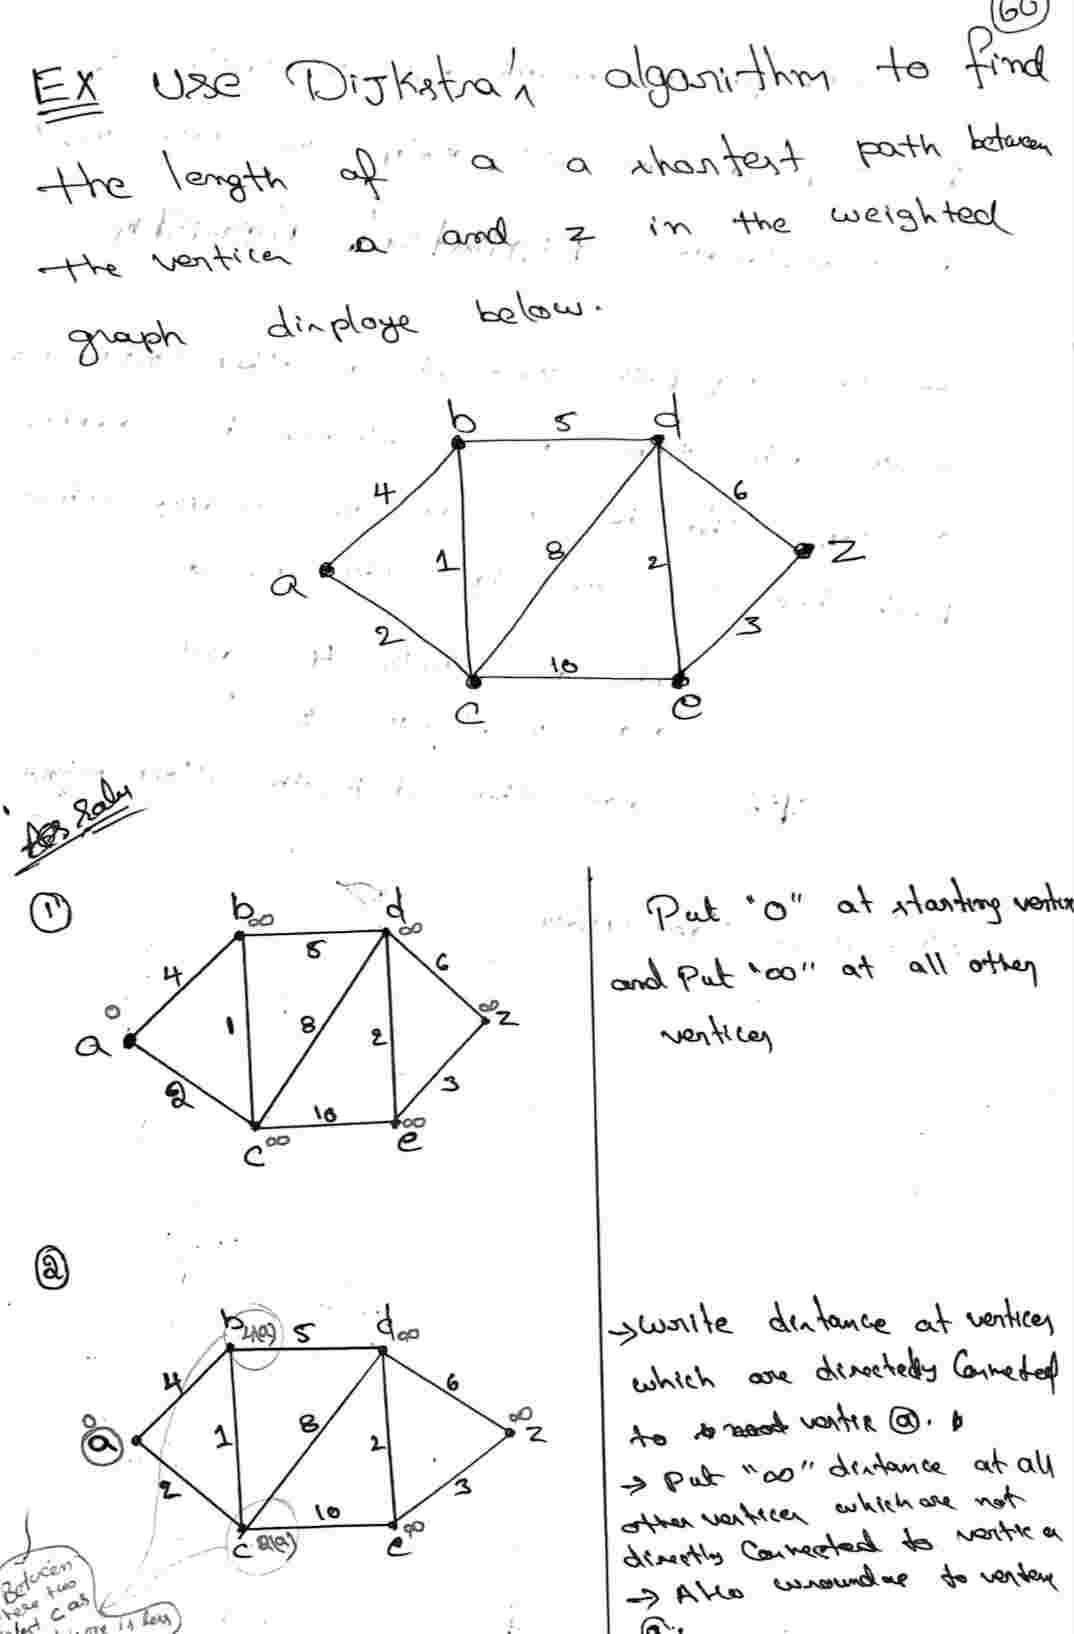 60
EX Use Dijkstra's algorithm to find
the length of a a shortest path between
the vertices a and z in the weighted
graph displaye below.
b 5 d
4 6
a 1 8 2 z
2 10 3
c e
Soln
1
b ∞ d ∞
4 5 6
0 ∞
a 1 8 2 z
2 10 3
c ∞ e ∞
Put "0" at starting vertex
and Put "∞" at all other
vertices
2
b 4(a) 5 d ∞
4 6
0 ∞
a 1 8 2 z
2 10 3
c 2(a) e ∞
→ Write distance at vertices
which are directedly Connected
to vertex a.
→ Put "∞" distance at all
other vertices which are not
directly Connected to vertic a
→ Also
a.
Between
these two
c as
is less